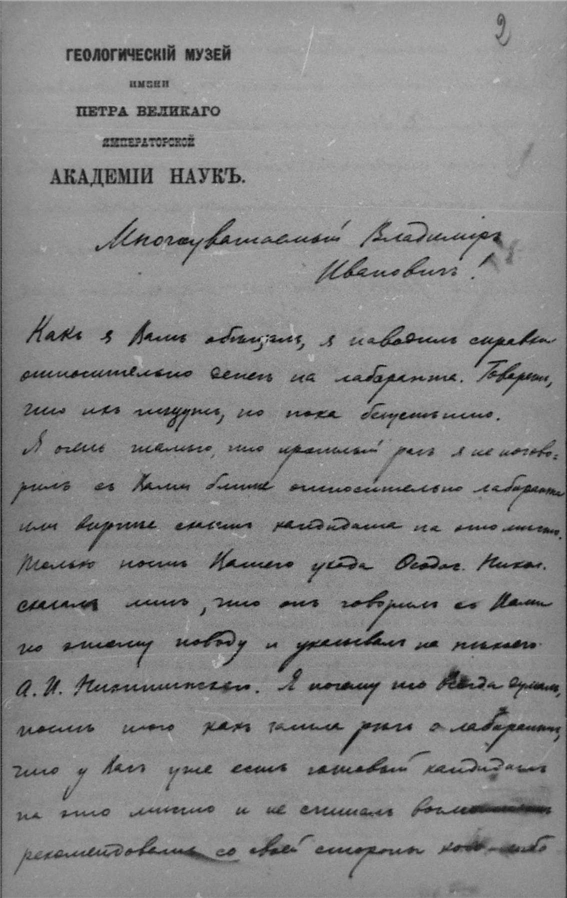 2
ГЕОЛОГИЧЕСКІЙ МУЗЕЙ
ИМЕНИ
ПЕТРА ВЕЛИКАГО
ИМПЕРАТОРСКОЙ
АКАДЕМІИ НАУКЪ.
Многоуважаемый Владиміръ
Ивановичъ!
Какъ я Вамъ обѣщалъ, я наводилъ справки
относительно денегъ на лабаранта. Говорятъ,
что ихъ ищутъ, но пока безуспѣшно.
Я очень жалѣю, что прошлый разъ я не погово-
рилъ съ Вами ближе относительно лабаранта
или вѣрнѣе сказать кандидата на это мѣсто.
Только послѣ Вашего ухода Ѳеодос. Никол.
сказалъ мнѣ, что онъ говорилъ съ Вами
по этому поводу и указывалъ на нѣкоего
А. И. Я почему то всегда думалъ,
послѣ того какъ зашла рѣчь о лаборантѣ,
что у Васъ уже есть готовый кандидатъ
на это мѣсто и не считалъ
рекомендовать со своей стороны кого-либо